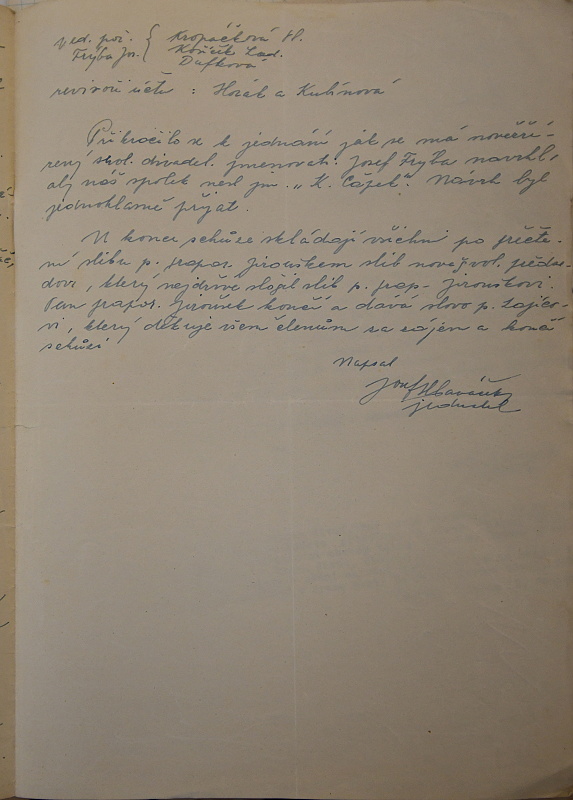 ved. poř. { Kropáčková H.
Frýba Jos. Košťík Lad.
Dufková
revisoři účtů : Horák a Kulínová
Přikročilo se k jednání jak se má nově zří-
zený škol. divadel. jmenovati. Josef Frýba navrhl,
aby náš spolek nesl jm. „K. Čapek". Návrh byl
jednohlasně přijat.
Na konec schůze skládají všichni po přečte-
ní slibu p. prapor. Jirouškem slib nově zvol. předse-
dovi, který nejdříve složil slib p. prap. Jirouškovi.
Pan prapor. Jiroušek končí a dává slovo p. Zajíčko-
vi, který děkuje všem členům za zájem a končí
schůzi
Napsal
Josef Hlaváček
jednatel